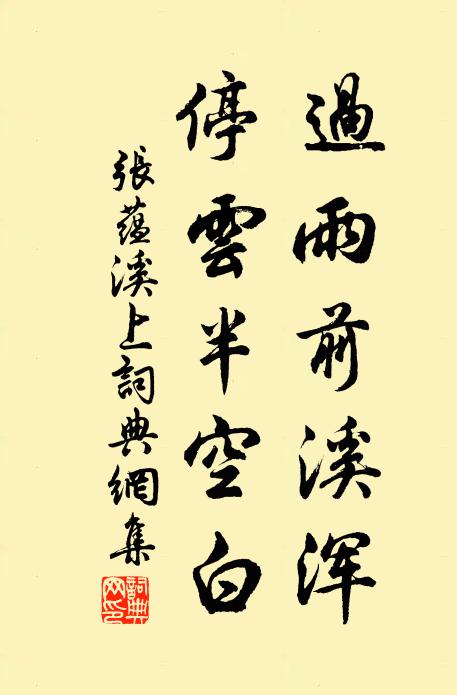 過雨前溪渾
停雲半空白
張蘊溪上詞典網集
詞典網印